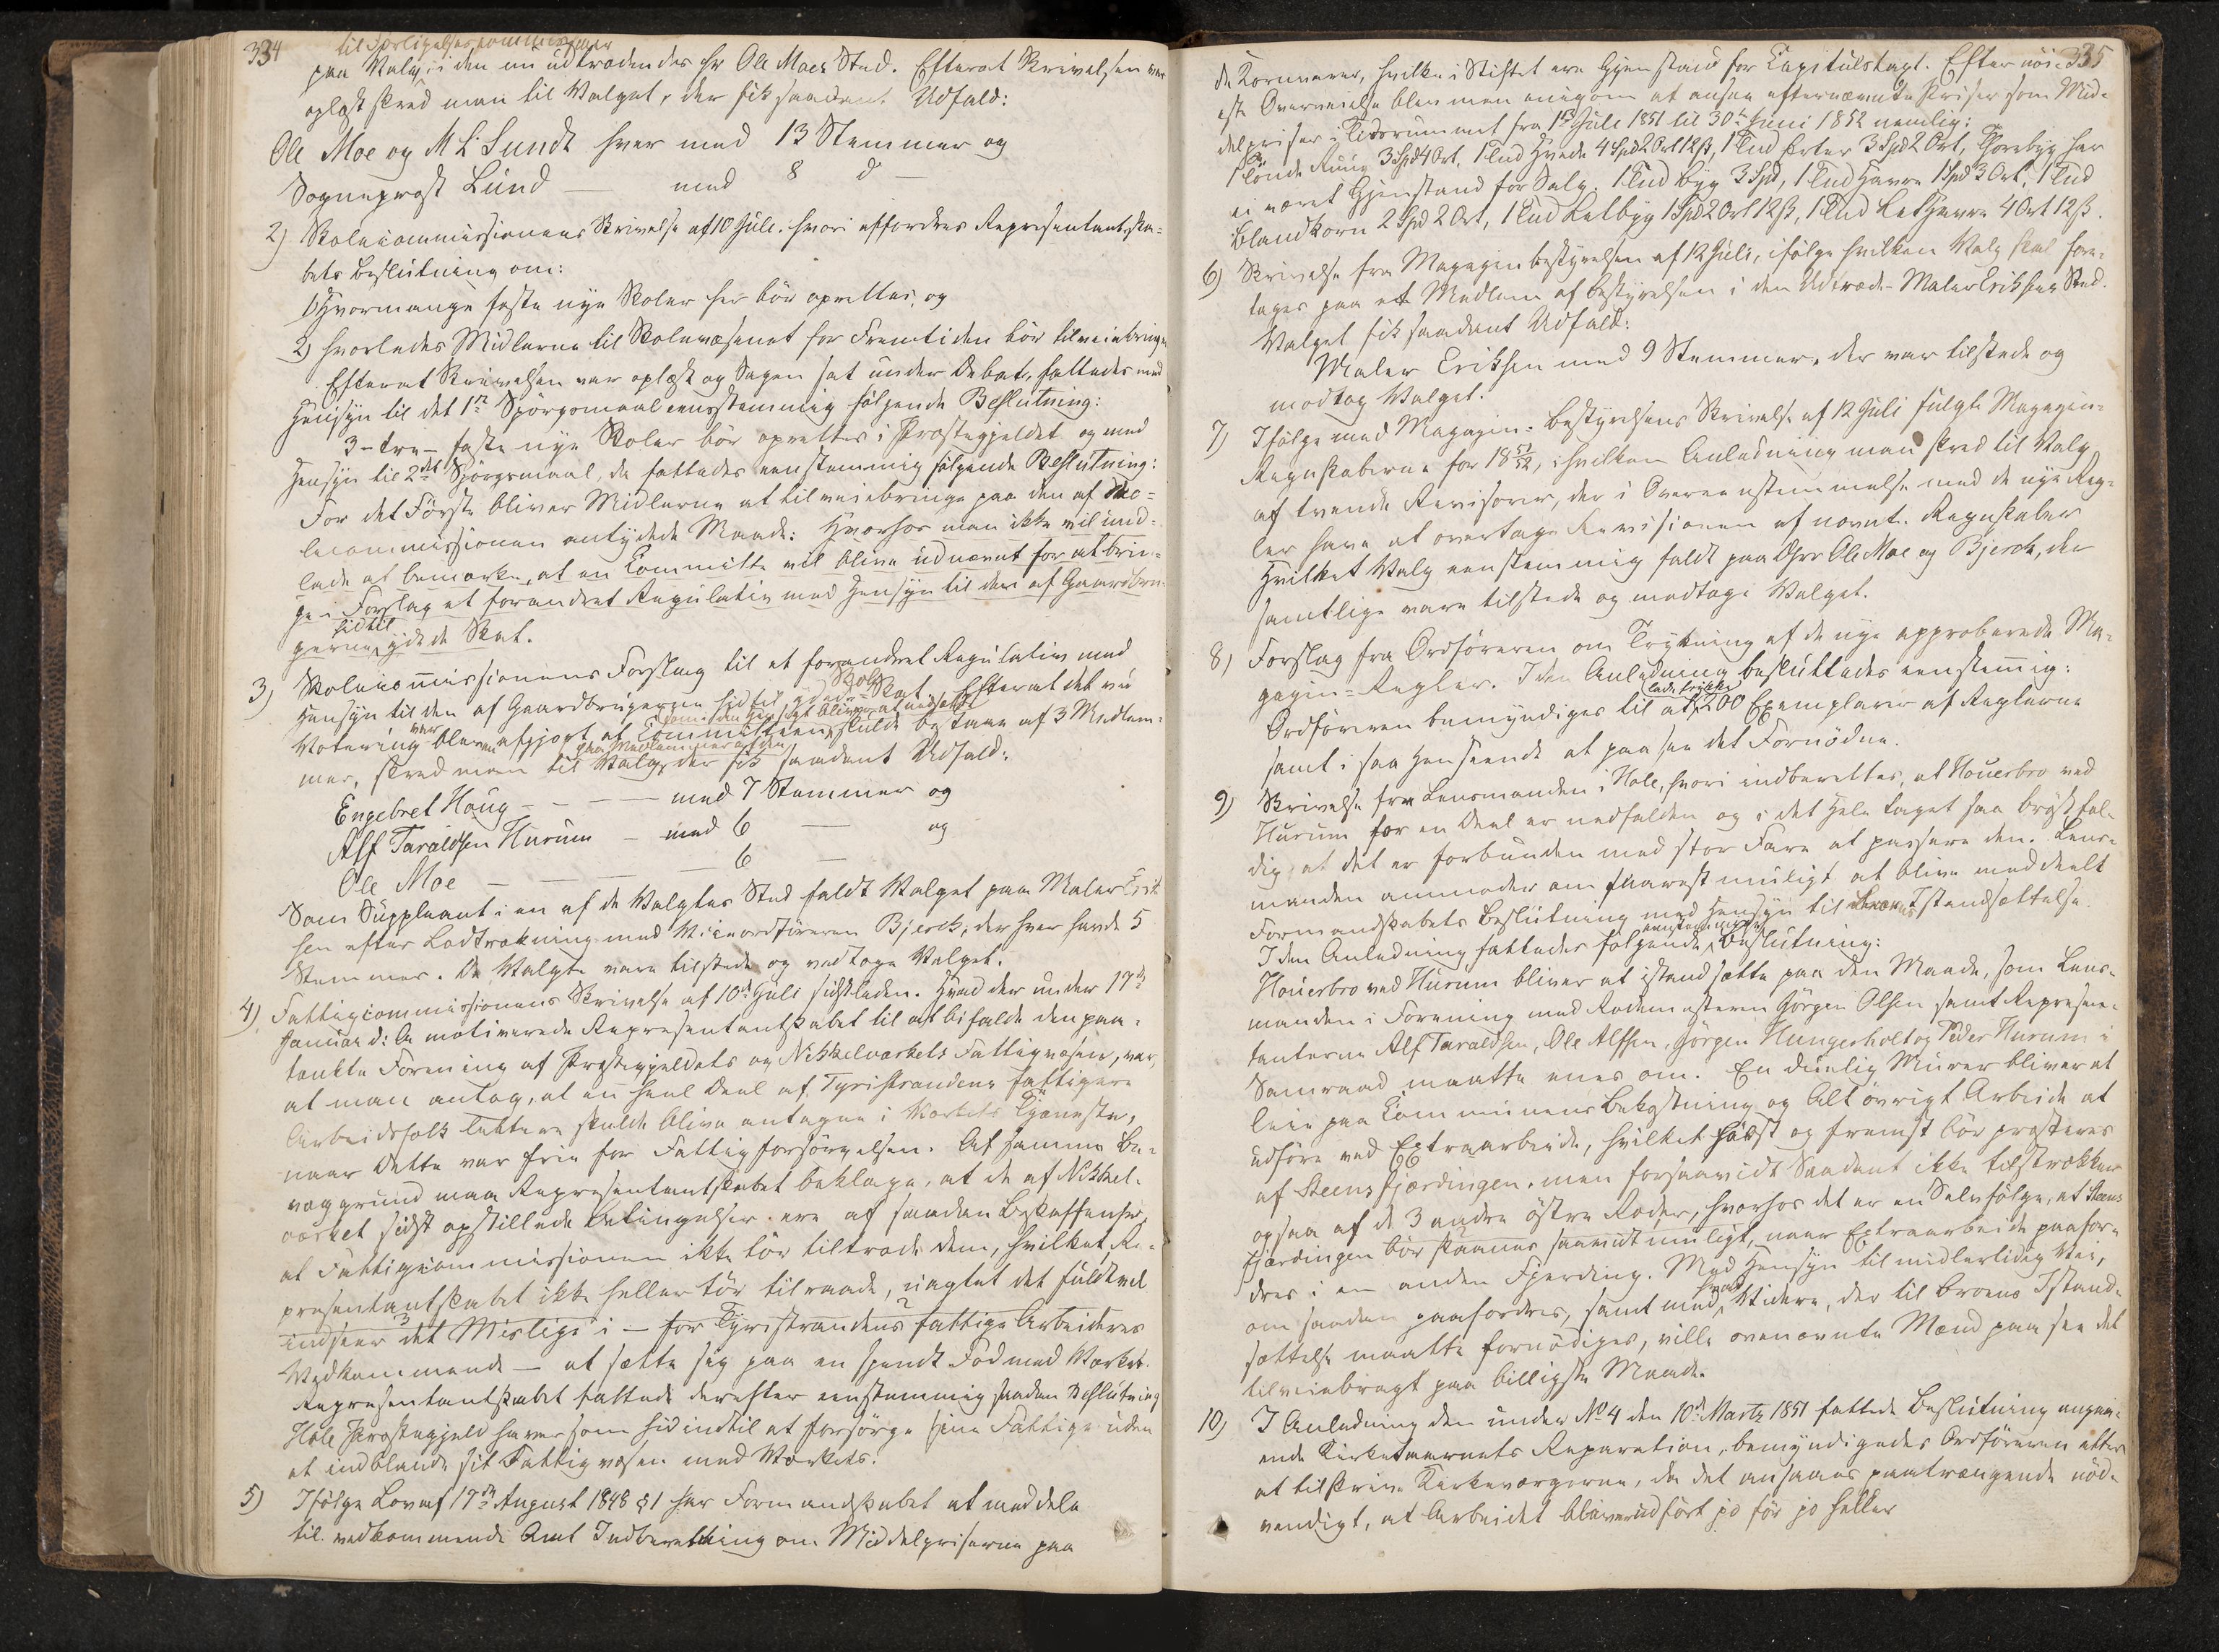 334
til Forligelsescommissair
paa Valg i den nu udtrædendes Hr Ole Moes Sted. Efterat Skrivelsen var
oplæst skred man til Valget, der fik saadant Udfald:
Ole Moe og M L Sundt hver med 13 Stemmer og
Sogneprost Lund — med 8 d —
2) Skolecommissionens Skrivelse af 10 Juli, hvori affordres Repræsentantska-
bets Beslutning om:
1) Hvormange faste nye Skoler her bör oprettes, og
2) hvorledes Midlerne til Skolevæsenet for Fremtiden bör tilveiebringes
Efterat Skrivelsen var oplæst og Sagen sat under Debat, fattedes med
Hensyn til det 1ste Spörgsmaal eenstemmig fölgende Beslutning:
3 - tre - faste nye Skoler bör oprettes i Præstegjeldet og med
Hensyn til 2det Spörgsmaal, da fattedes eenstemmig fölgende Beslutning:
For det Förste bliver Midlerne at tilveiebringe paa den af Sko-
lecommissionen antydede Maade: Hvorhos man ikke vil und-
lade at bemærke, at en Committe vil blive udnævnt for at brin-
ge i Forslag et forandret Regulativ med Hensyn til den af Gaardbru-
gerne hidtil ydede Skat.
3) Skolecommissionens Forslag til et forandret Regulativ med
Hensyn til den af Gaardbrugerne hidtil ydede Skole-Skat. Efterat det ved
Votering var bleven afgjort at Committeen, som i den Hensigt bliver at nedsætte skulde bestaae af 3 Medlem-
mer, skred man til Valg paa Medlemmer af den der fik saadant Udfald:
Engebret Houg - - - - med 7 Stemmer og
Alf Taraldsen Hurum - med 6 — og
Ole Moe — — — 6 —
Som Suppleant i en af de Valgtes Sted faldt Valget paa Maler Erik-
sen efter Lodtrækning med Viceordföreren Bjerck, der hver havde 5
Stemmer. De Valgte vare tilstede og vedtoge Valget.
4) Fattigcommissionens Skrivelse af 10de Juli sidstleden. Hvad der under 17de
Januar d: A motiverede Repræsentantskabet til at bifalde den paa-
tænkte Forening af Præstegjeldets og Nikkelværkets Fattigvæsen, var,
at man antog, at en heel Deel af Tyristrandens fattigere
Arbeidsfolk lettere skulde blive antagne i Værkets Tjeneste,
naar dette var frie for Fattigforsörgelsen. Af samme Be-
væggrund maa Repræsentantskabet beklage, at de af Nikkel-
værket sidst opstillede Betingelser ere af saadan Beskaffenhed,
at Fattigcommissionen ikke tör tiltræde dem, hvilket Re-
præsentantskabet ikke heller tör tilraade, uagtet det fuldtvel
indseer det Mislige i — for Tyristrandens fattige Arbeideres
Vedkommende — at sætte sig paa en spendt Fod med Værket.
Repræsentantskabet fattede derefter eenstemmig saadan Beslutning
Hole Præstegjeld haver som hidindtil at forsörge sine Fattige uden
at indblande sit Fattigvæsen med Værkets.
5) Ifölge Lov af 17de August 1848 § 1 har Formandskabet at meddele
til vedkommende Amt Indberetning om Middelpriserne paa
335
de Kornvarer, hvilke i Stiftet ere Gjenstand for Capitulstaxt. Efter nöi-
este Overveielse blev man enig om at ansee efternævnte Priser som Mid-
delpriser i Tidsrummet fra 1ste Juli 1851 til 30te Juni 1852 nemlig:
1 Tönde Rug 3 Spd 4 Ort, 1 Tnd Hvede 4 Spd 2 Ort 12 ß, 1 Tnd Erter 3 Spd 2 Ort, Thorebyg har
ei været Gjenstand for Salg. 1 Tnd Byg 3 Spd, 1 Tnd Havre 1 Spd 3 Ort, 1 Tnd
Blandkorn 2 Spd 2 Ort, 1 Tnd Letbyg 1 Spd 2 Ort 12 ß, 1 Tnd Lethavre 4 Ort 12 ß.
6) Skrivelse fra Magazinbestyrelsen af 12 Juli, ifölge hvilken Valg skal fore-
tages paa et Medlem af Bestyrelsen i den Udtræd- Maler Eriksens Sted.
Valget fik saadant Udfald:
Maler Eriksen med 9 Stemmer, der var tilstede og
modtog Valget.
7) Ifölge med Magazin-Bestyrelsens Skrivelse af 12 Juli fulgte Magazin-
Regnskaberne for 18 51/52, i hvilken Anledning man skred til Valg
af trende Revisorer, der i Overeenstemmelse med de nye Reg-
ler have at overtage Revisionen af nævnte Regnskaber
Hvilket Valg eenstemmig faldt paa Dhrr Ole Moe og Bjerck, der
samtlige vare tilstede og modtoge Valget.
8) Forslag fra Ordföreren om Trykning af de nye approberede Ma-
gazin-Regler. I den Anledning besluttedes eenstemig:
Ordföreren bemyndiges til at lade trykke 200 Exemplarer af Reglerne
samt i saa Henseende at paasee det Fornödne.
9) Skrivelse fra Lensmanden i Hole, hvori indberettes, at Houerbro ved
Hurum for en Deel er nedfalden og i det Hele taget saa bröstfæl-
dig, at det er forbunden med stor Fare at passere den. Lens-
manden anmoder om snarest muligt at blive meddeelt
Formandskabets Beslutning med Hensyn til Broens Istandsættelse.
I den Anledning fattedes fölgende eenstemmige Beslutning:
Houerbro ved Hurum bliver at istandsætte paa den Maade, som Lens-
manden i Forening med Rodemesteren Jörgen Olsen samt Repræsen-
tanterne Alf Taraldsen, Ole Alfsen, Jörgen Hungerholt og Peder Hurum i
Samraad maatte enes om. En duelig Murer bliver at
leie paa Communens Bekostning og Alt övrigt Arbeide at
udföre ved Extraarbeide, hvilket först og fremst bör præsteres
af Steensfjærdingen, men forsaavidt Saadant ikke tilstrækker
ogsaa af de 3 andre östre Roder, hvorhos det er en Selvfölge, at Steens
fjærdingen bör skaanes saavidt muligt, naar Extraarbeide paafor-
dres i en anden Fjerding. Med Hensyn til midlertidig Vei,
om saadan paafordres, samt med hvad Videre, der til Broens Istand-
sættelse maatte fornödiges, ville ovennævnte Mænd paasee det
tilveiebragt paa billigste Maade.
10) I Anledning den under No 4 den 10de Martz 1851 fattede Beslutning angaa-
ende Kirketaarnets Reparation, bemyndigedes Ordföreren atter
at tilskrive Kirkeværgerne, da det ansaaes paatrængende nöd-
vendigt, at Arbeidet bliver udfört jo för jo heller